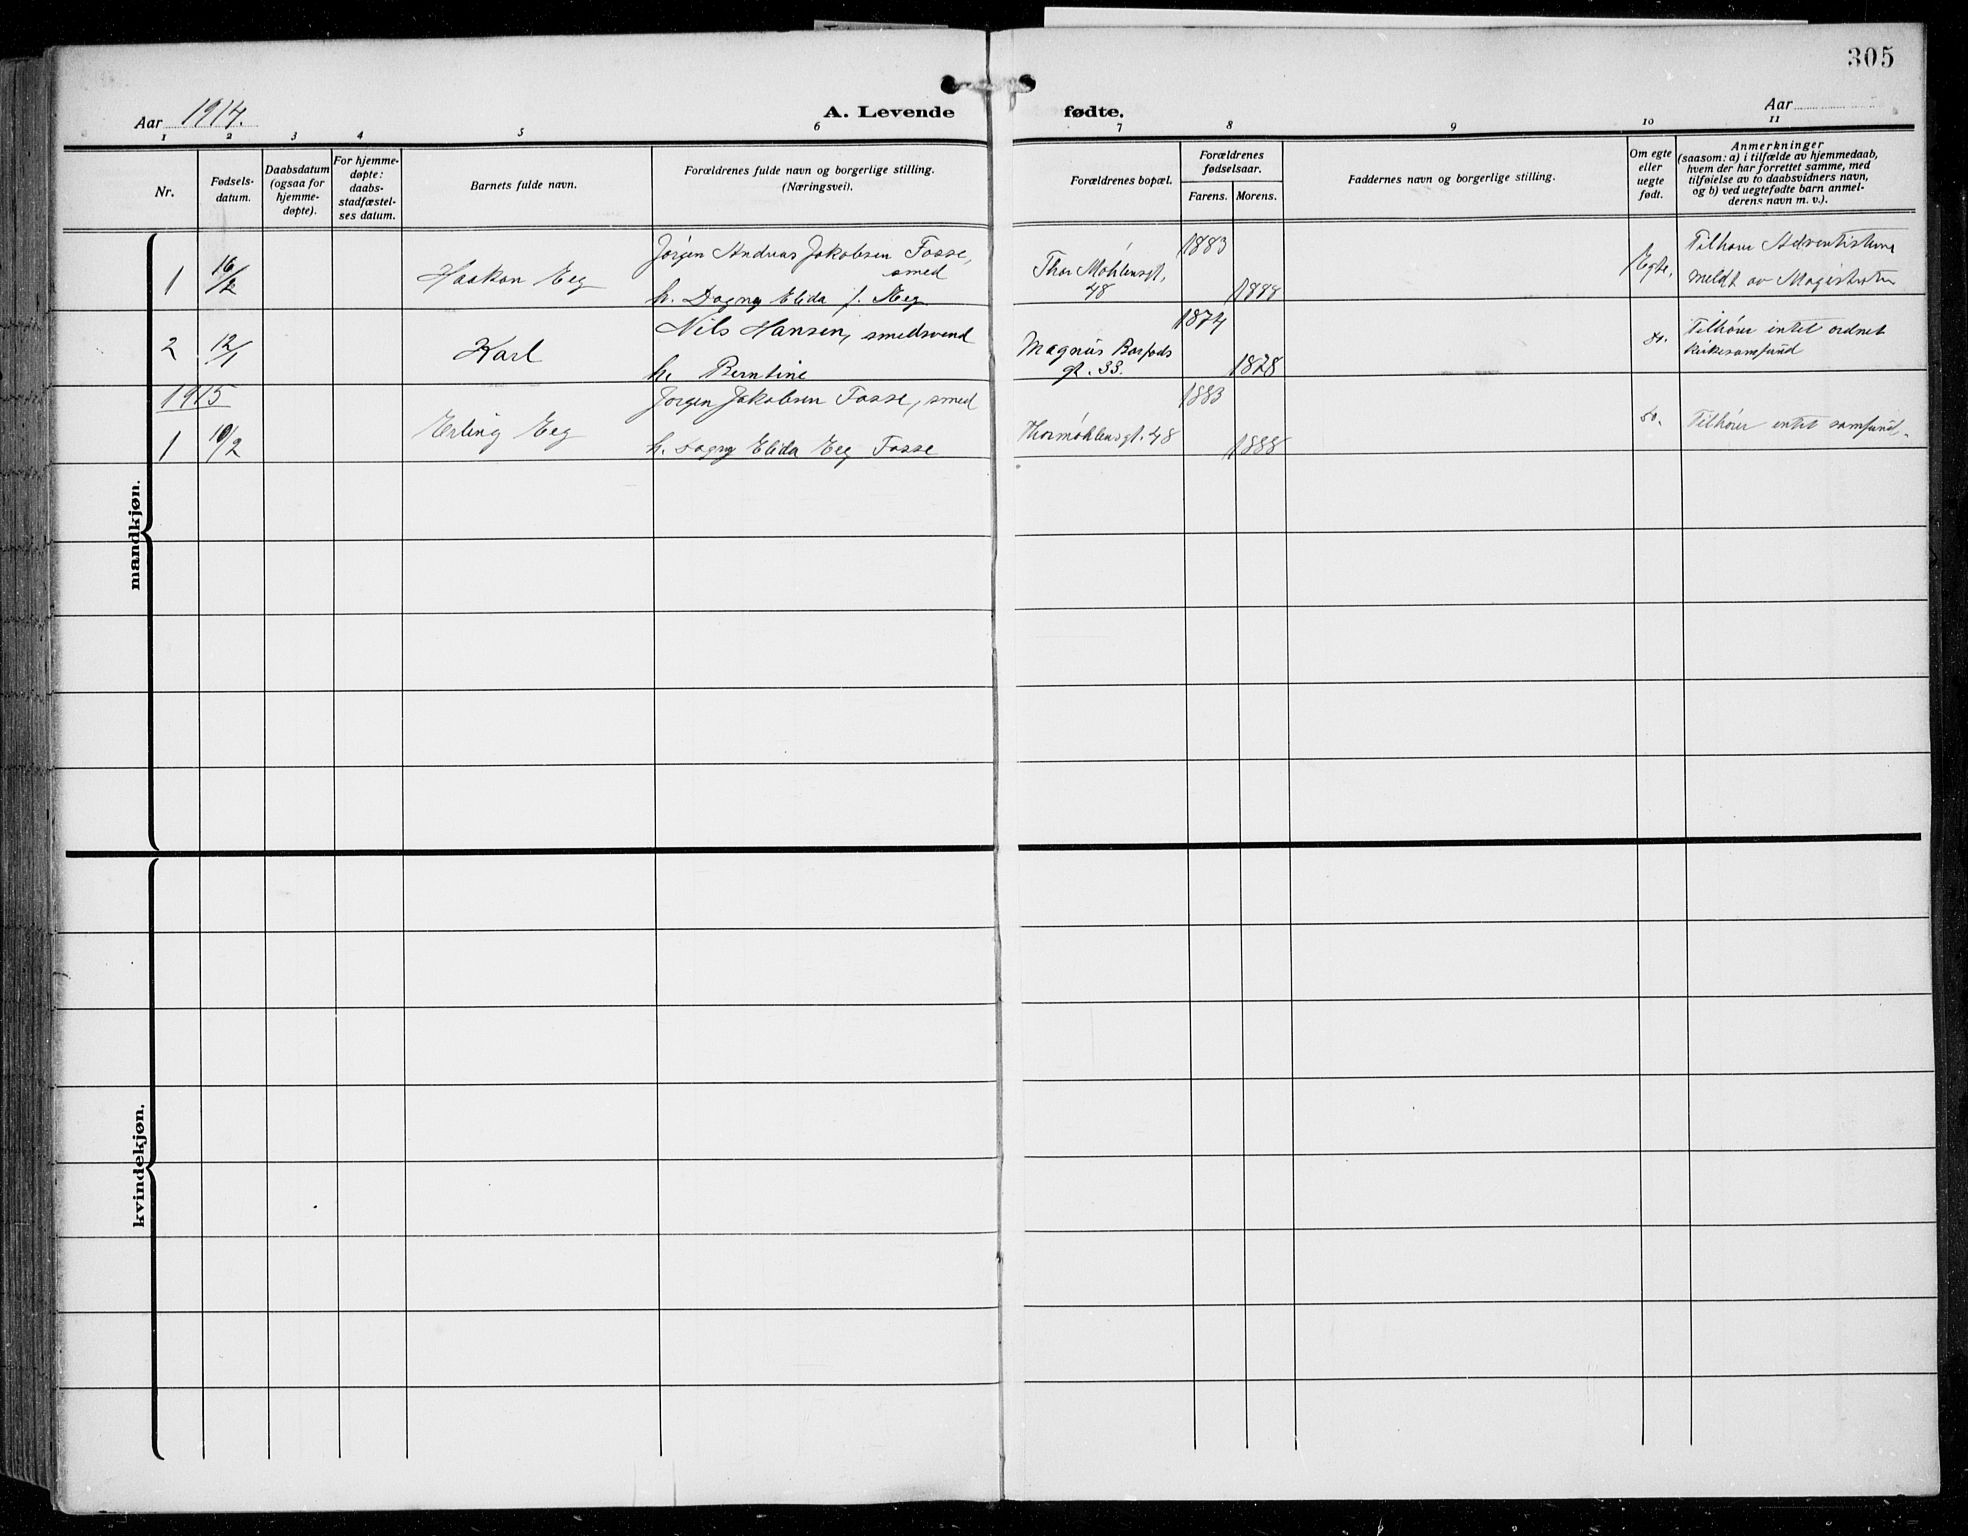 305
Aar 1914.
A. Levende fødte.
Aar
1 2 3 4 5 6 7 8 9 10 11
Nr.
Fødsels-
datum.
Daabsdatum
(ogsaa for
hjemme-
døpte).
For hjemme-
døpte:
daabs-
stadfæstel-
ses datum.
Barnets fulde navn.
Forældrenes fulde navn og borgerlige stilling.
(Næringsvei).
Forældrenes bopæl.
Forældrenes
fødselsaar.
Farens. Morens.
Faddernes navn og borgerlige stilling.
Om egte
eller
uegte
født.
Anmerkninger
(saasom: a) i tilfælde av hjemmedaab,
hvem der har forrettet samme, med
tilføielse av to daabsvidners navn,
og b) ved uegtefødte barn anmel-
derens navn m. v.).
mandkjøn.
1 16/2 Haakon Eeg
Jørgen Andreas Jakobsen Fosse,
smed
h. Dagny Elida f. Eeg
Thor Møhlensgt.
48
1883
1888
Egte,
Tilhører Adventisterne
meldt av Magistraten
2 12/1 Karl
Nils Hansen, smedsvend
h. Berntine
Magnus Barfods
gt. 33.
1874
1878
do.
Tilhører intet ordnet
kirkesamfund
1915
1 10/2 Erling Eeg
Jørgen Jakobsen Fosse, smed
h. Dagny Elida Eeg Fosse
Thormøhlensgt. 48
1883
1888
do.
Tilhører intet samfund.
kvindekjøn.